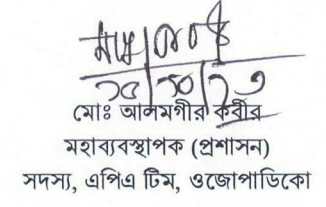 ১৫/১০/২৩
মোঃ আলমগীর কবীর
মহাব্যবস্থাপক (প্রশাসন)
সদস্য, এপিএ টিম, ওজোপাডিকো